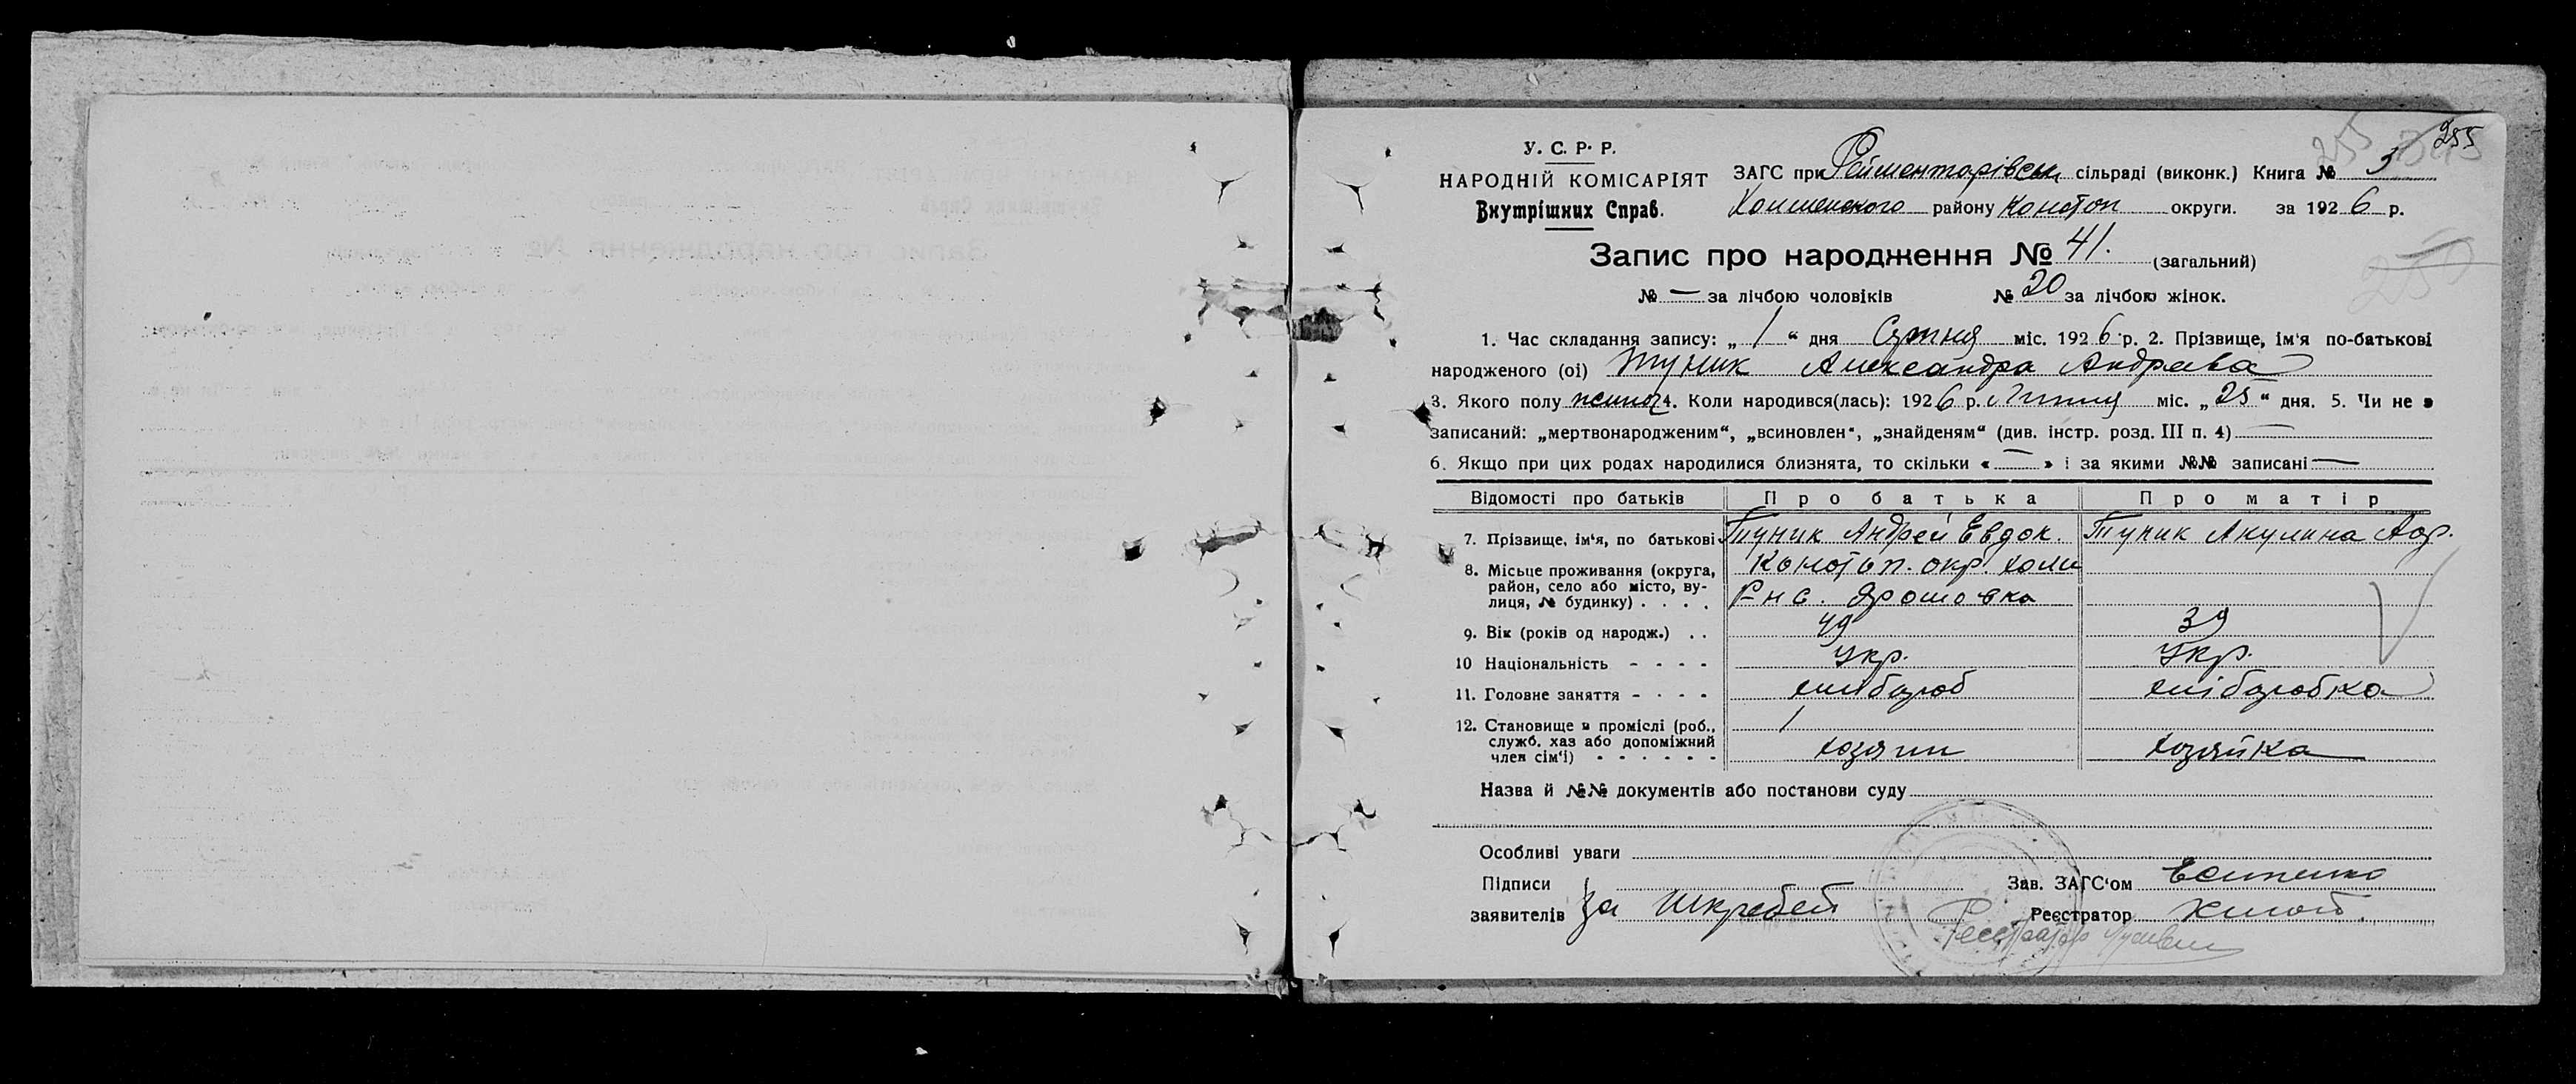 255
У. С. Р. Р.
НАРОДНІЙ КОМІСАРІЯТ
Внутрішних Справ.
ЗАГС при Рейментарівськ сільраді (виконк.) Книга № 3
Холменского району Конотоп округи. за 1926 р.
Запис про народження № 41. (загальний)
№ — за лічбою чоловіків № 20 за лічбою жінок.
1. Час складання запису: „ 1 “ дня Серпня міс. 1926 р. 2. Прізвище, ім'я по-батькові
народженого (ої) Тупик Александра Андреева
3. Якого полу жиноч 4. Коли народився(лась): 1926 р. Липня міс. „ 25 “ дня. 5. Чи не є
записаний: „мертвонародженим“, „всиновлен“, „знайденям“ (див. інстр. розд. III п. 4) —
6. Якщо при цих родах народилися близнята, то скільки « — » і за якими №№ записані —
Відомості про батьків Про батька Про матір
7. Прізвище, ім'я, по батькові Тупик Андрей Евдок. Тупик Акулина
8. Місьце проживання (округа, район, село або місто, вулиця, № будинку) . . . . Конотоп. окр. Холм
Р-н с. Ярошовка
9. Вік (років од народж.) . . 49 39
10 Національність - - - - Укр. Укр.
11. Головне заняття - - - - хлібороб хліборобка
12. Становище в проміслі (роб.,
служб. хаз або допоміжний
член сім'ї) - - - - - - хозяин хозяйка
Назва й №№ документів або постанови суду
Особливі уваги
Підписи
заявителів За Шкребей
Зав. ЗАГС'ом Есипенко
Реєстратор
Реєстратор